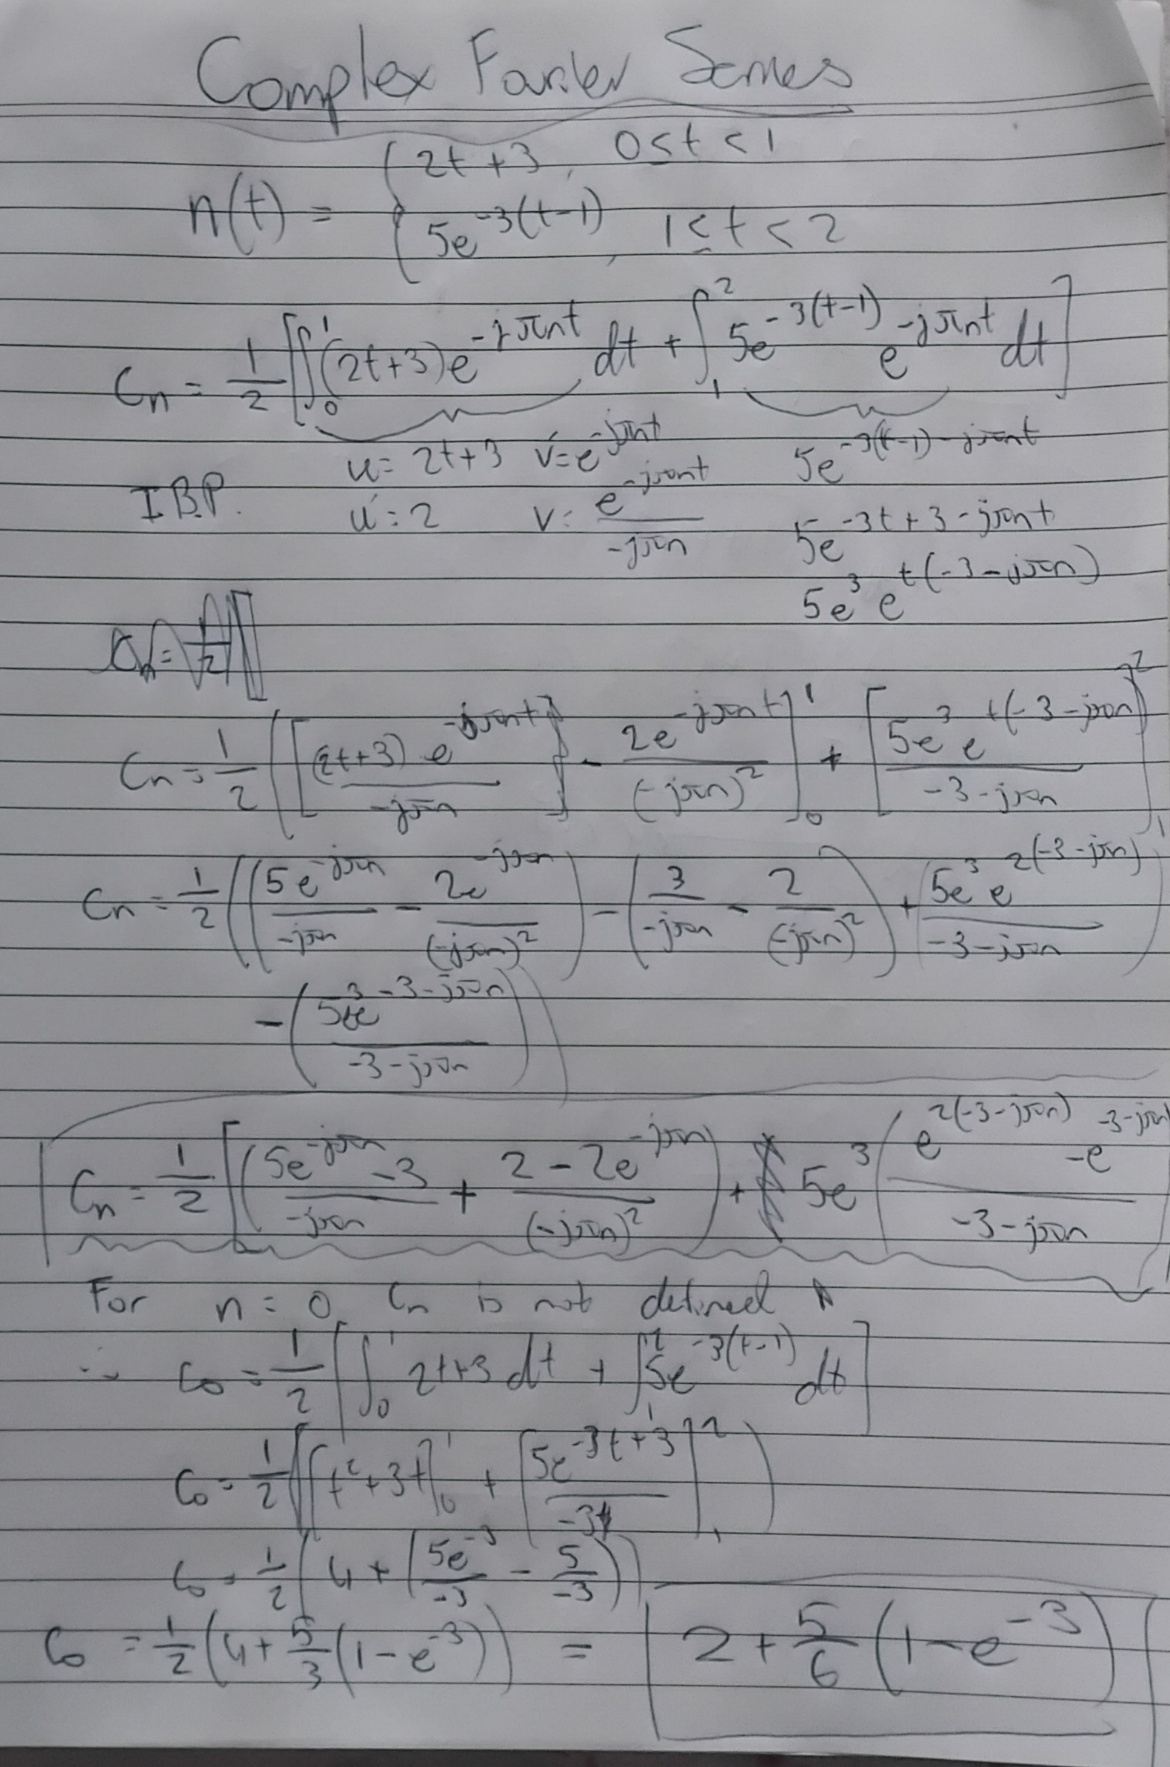 Complex Fourier Series
n(t) = { 2t + 3, 0 ≤ t < 1
5e^{-3(t-1)}, 1 ≤ t < 2
Cn = 1/2 [∫_0^1 (2t+3)e^{-jπnt} dt + ∫_1^2 5e^{-3(t-1)} e^{-jπnt} dt]
u = 2t+3 v' = e^{-jπnt} 5e^{-3(t-1)-jπnt}
I.B.P. u' = 2 v = e^{-jπnt}/(-jπn) 5e^{-3t+3-jπnt}
5e^3 e^{t(-3-jπn)}
Cn = 1/2 ([(2t+3) e^{-jπnt}/(-jπn) - 2e^{-jπnt}/(-jπn)^2]_0^1 + [5e^3 e^{t(-3-jπn)}/(-3-jπn)]_1^2
Cn = 1/2 ((5e^{-jπn}/(-jπn) - 2e^{-jπn}/(-jπn)^2) - (3/(-jπn) - 2/(-jπn)^2) + 5e^3 e^{2(-3-jπn)}/(-3-jπn)
- (5e^3 e^{-3-jπn}/(-3-jπn)))
Cn = 1/2 [(5e^{-jπn} - 3)/(-jπn) + (2 - 2e^{-jπn})/(-jπn)^2) + 5e^3 (e^{2(-3-jπn)} - e^{-3-jπn})/(-3-jπn)
For n = 0 Cn is not defined
∴ C0 = 1/2 [∫_0^1 2t+3 dt + ∫_1^2 5e^{-3(t-1)} dt]
C0 = 1/2 ([t^2+3t]_0^1 + [5e^{-3t+3}/(-3)]_1^2)
C0 = 1/2 (4 + (5e^{-3}/(-3) - 5/(-3)))
C0 = 1/2 (4 + 5/3 (1 - e^{-3})) = 2 + 5/6 (1 - e^{-3})